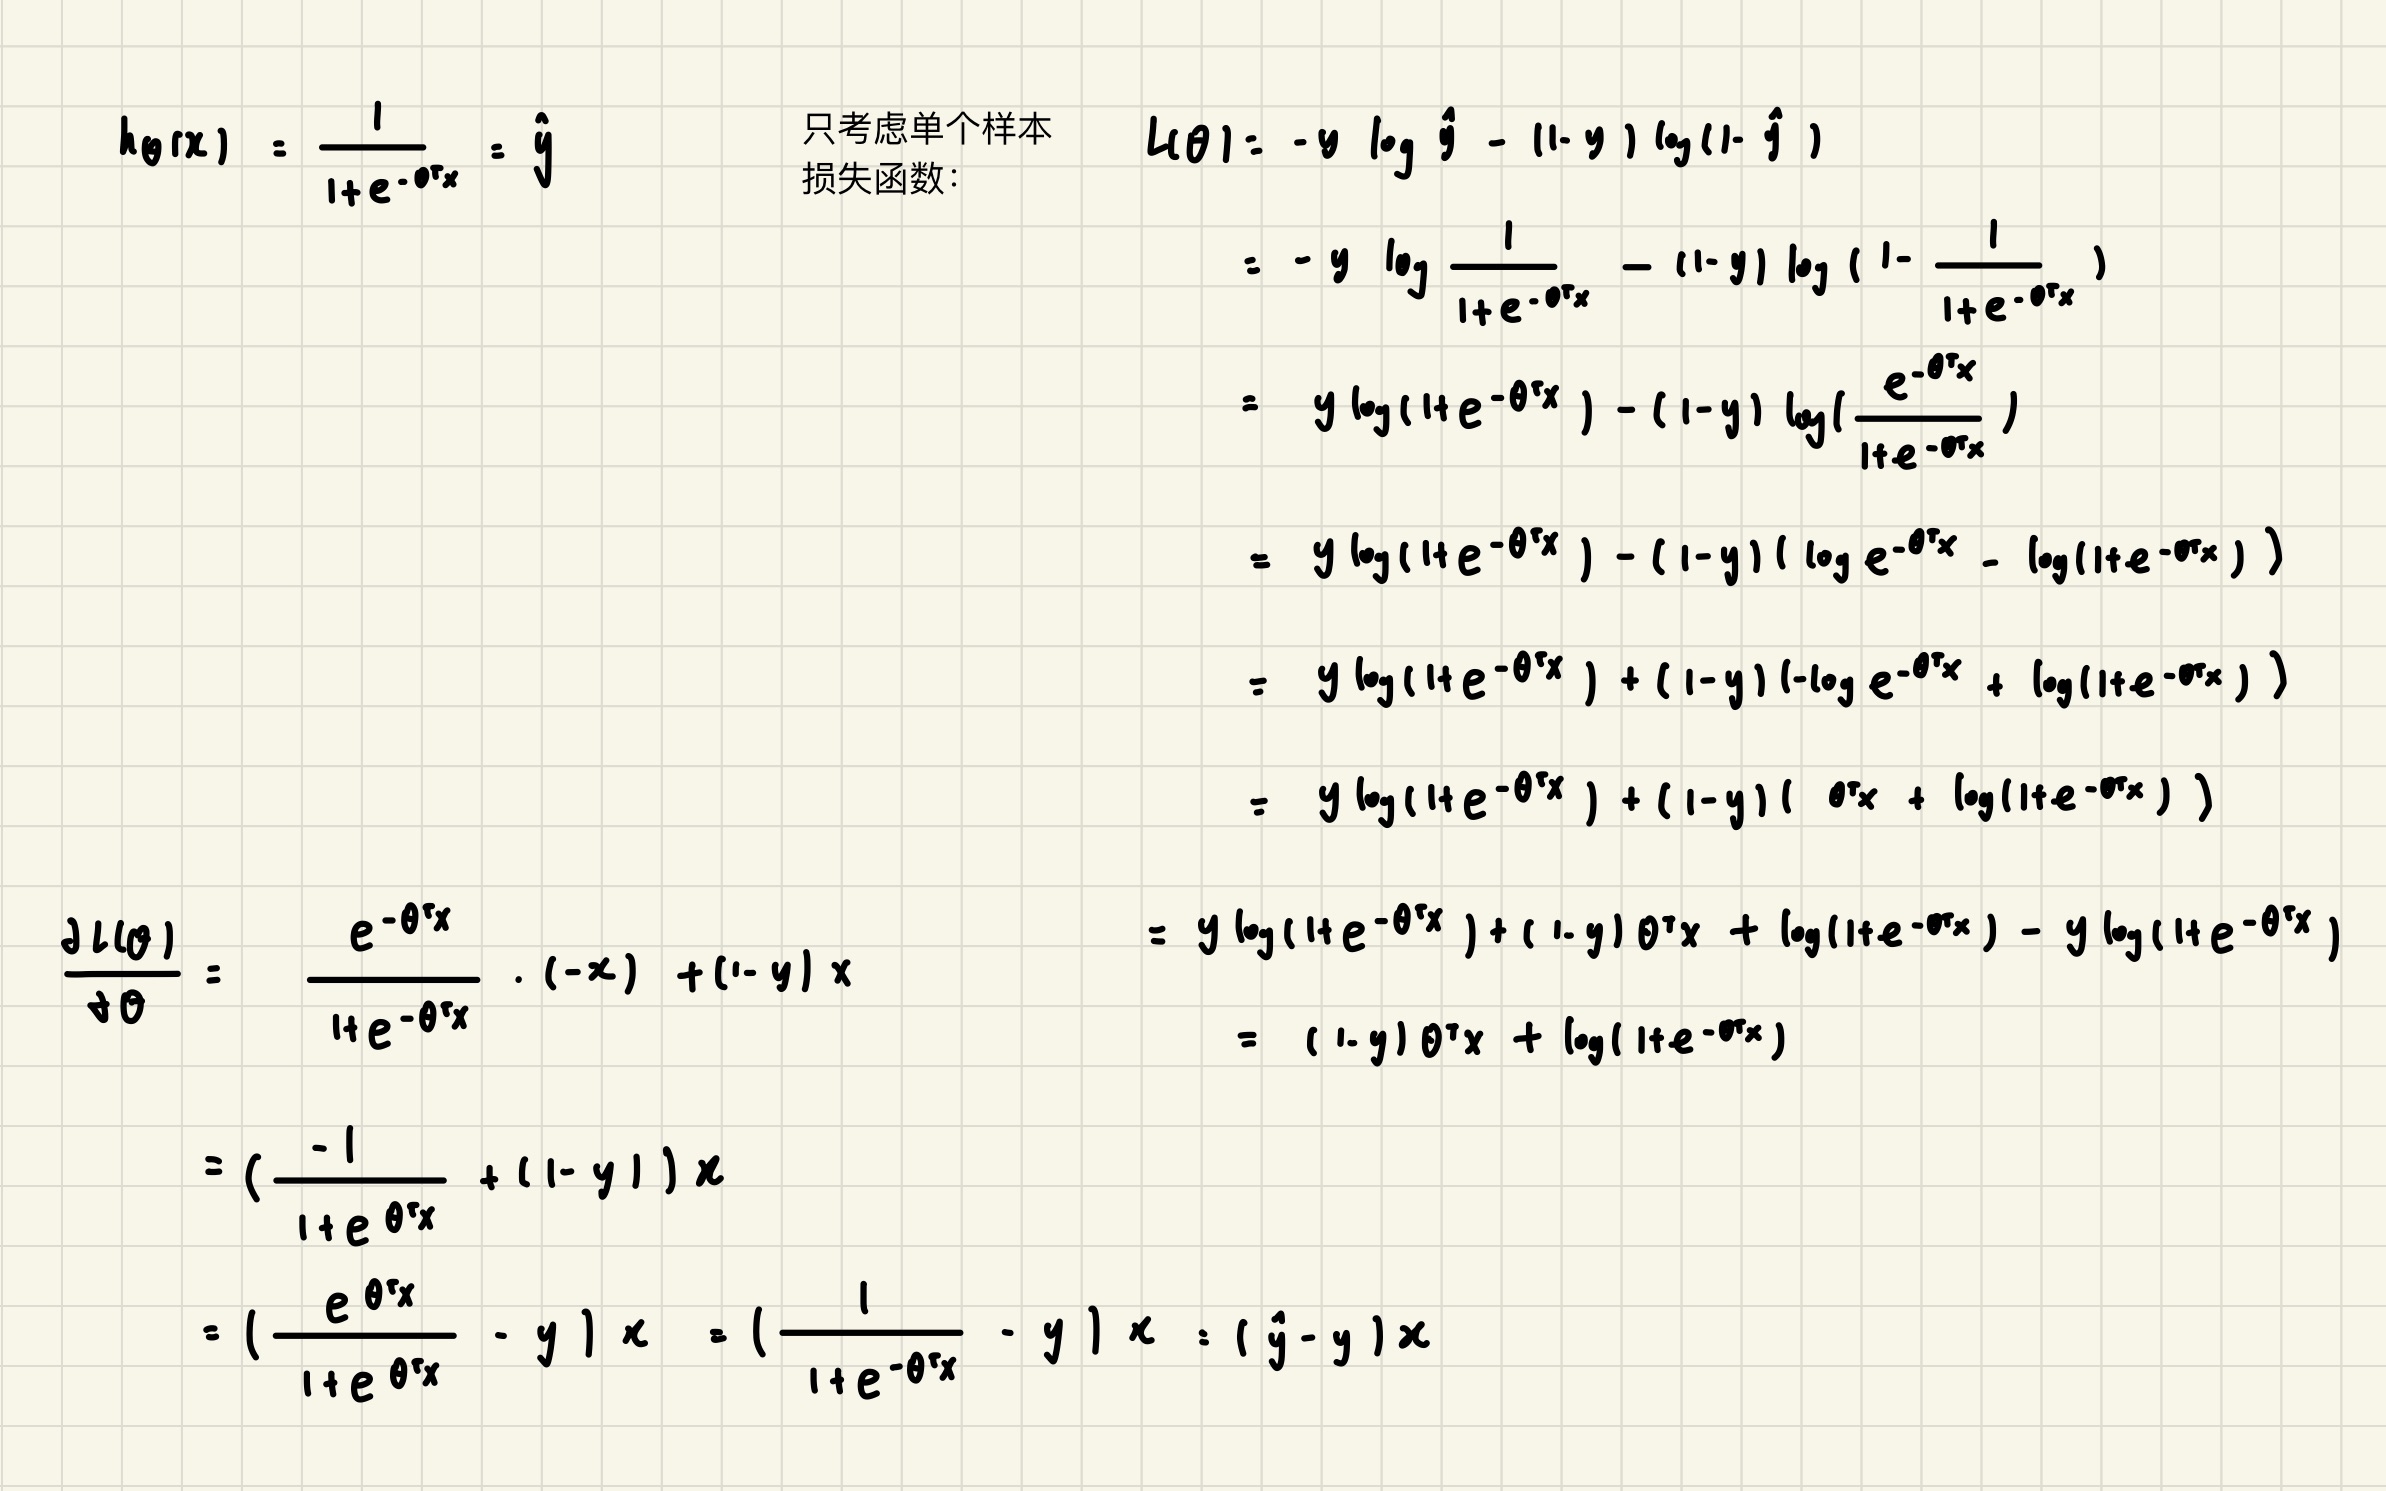 h_θ(x) = 1/(1+e^{-θ^T x}) = ŷ
只考虑单个样本
损失函数：
L(θ) = -y log ŷ - (1-y) log(1-ŷ)
= -y log 1/(1+e^{-θ^T x}) - (1-y) log(1- 1/(1+e^{-θ^T x}))
= y log(1+e^{-θ^T x}) - (1-y) log(e^{-θ^T x}/(1+e^{-θ^T x}))
= y log(1+e^{-θ^T x}) - (1-y)(log e^{-θ^T x} - log(1+e^{-θ^T x}))
= y log(1+e^{-θ^T x}) + (1-y)(-log e^{-θ^T x} + log(1+e^{-θ^T x}))
= y log(1+e^{-θ^T x}) + (1-y)(θ^T x + log(1+e^{-θ^T x}))
= y log(1+e^{-θ^T x}) + (1-y)θ^T x + log(1+e^{-θ^T x}) - y log(1+e^{-θ^T x})
= (1-y)θ^T x + log(1+e^{-θ^T x})
∂L(θ)/∂θ = e^{-θ^T x}/(1+e^{-θ^T x}) · (-x) + (1-y)x
= (-1/(1+e^{θ^T x}) + (1-y))x
= (e^{θ^T x}/(1+e^{θ^T x}) - y)x = (1/(1+e^{-θ^T x}) - y)x = (ŷ-y)x